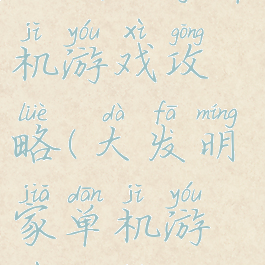 jī yóu xì gōng
机游戏攻
lüè dà fā míng
略(大发明
jiā dān jī yóu
家单机游